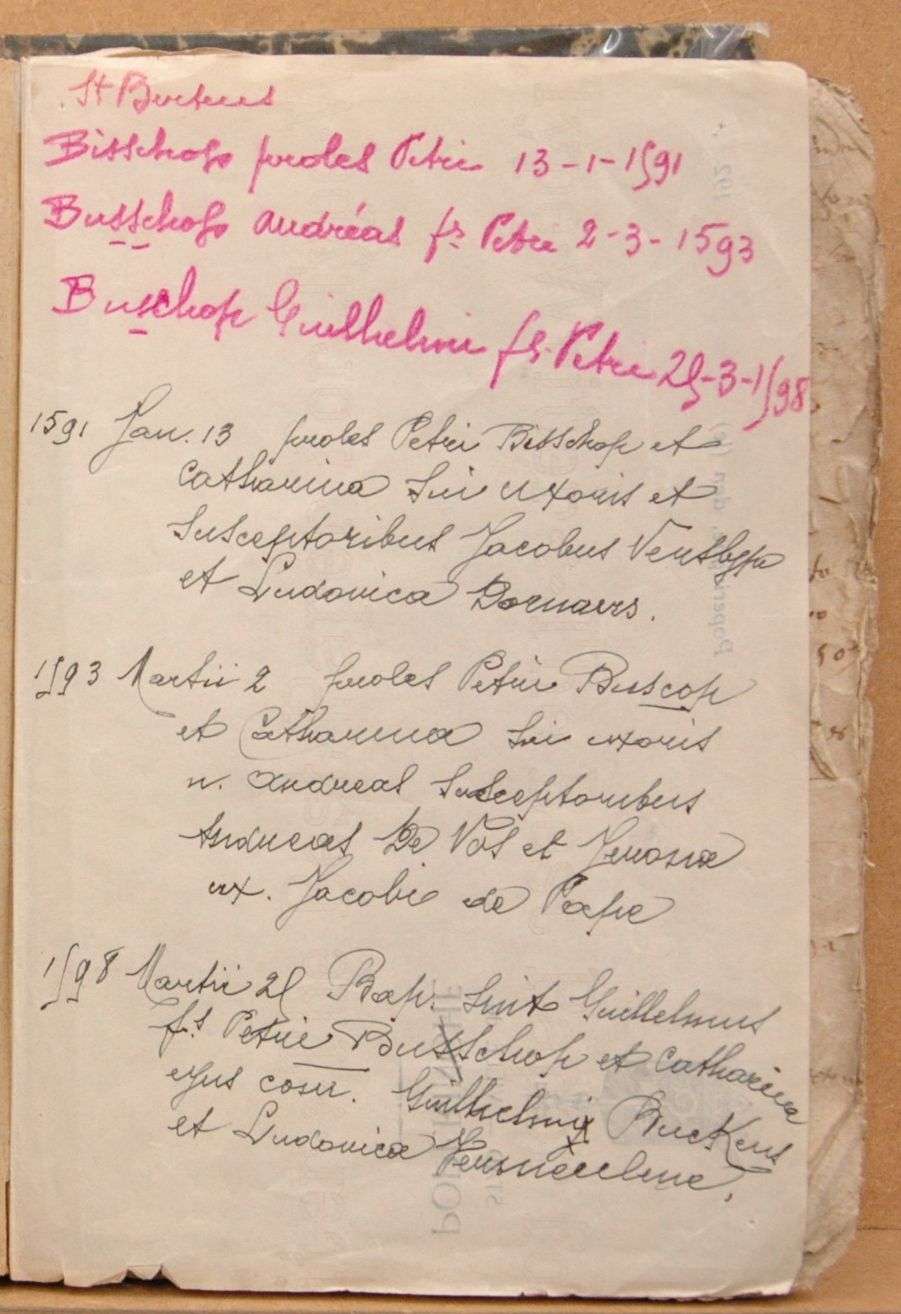 St
Bisschop proles Petri 13-1-1591
Busschop Andréas fs Petri 2-3-1593
Buschop Guilhelmi fs. Petri 25-3-1598
1591 Jan. 13 proles Petri Bisschop et
Catharina Sui uxoris et
Susceptoribus Jacobus
et Ludovica
1593 Martii 2 proles Petri Buscop
et Catharina Sui uxoris
n. Andreas Susceptoribus
Andreas De Vos et
ux. Jacobi de Pape
1598 Martii 25 Bap. Sunt Guillelmus
fs Petri Busschop et Catharina
ejus conr. Guilhelmi Buckens
et Ludovica